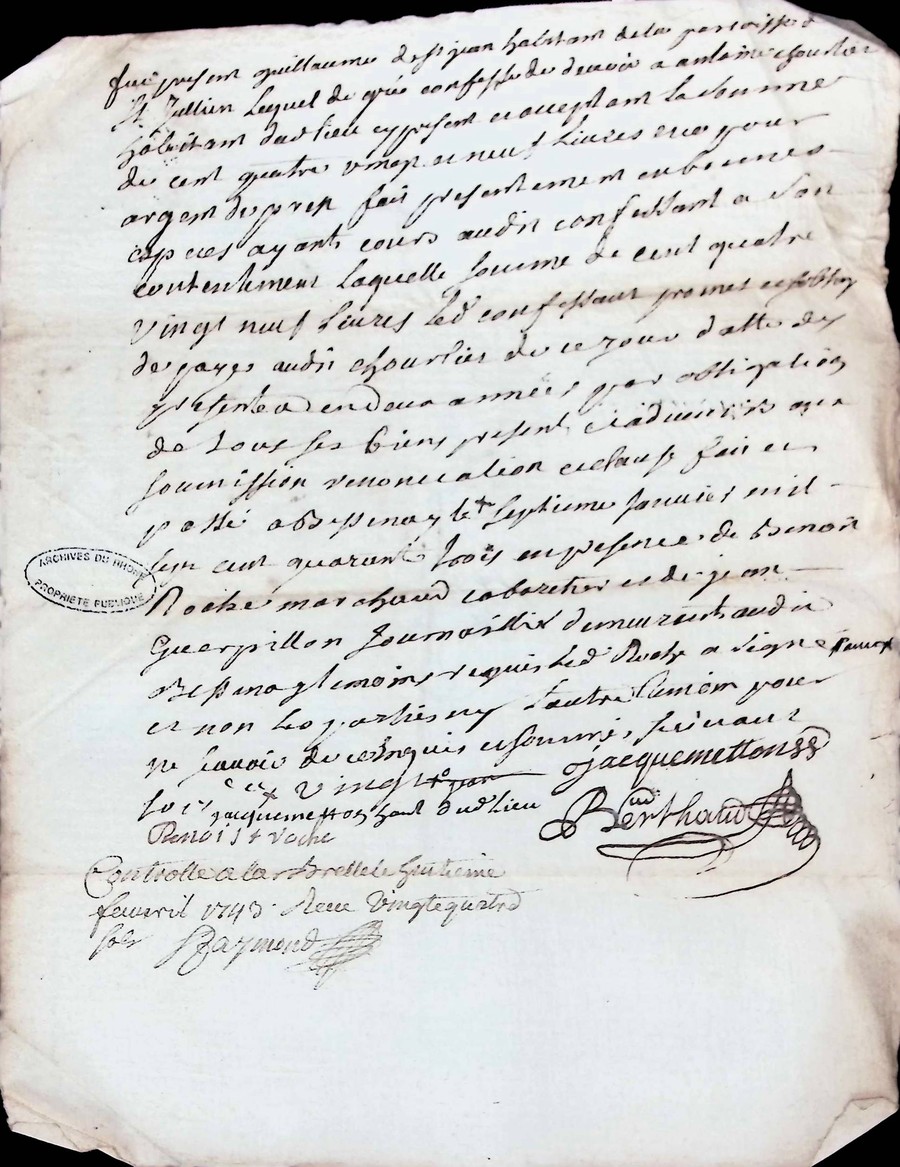 fut present guillaume de st jean habitant de la parroisse d
St Jullien lequel de gré confesse de devoir a antoine chourlier
habitant dud lieu cy present et acceptant la somme
de cent quatre vingt et neuf livres et ce pour
argent de prest fait presentement en bonnes
especes ayants cours audit confessant a son
contentement laquelle somme de cent quatre
vingt neuf livres led confessant promet
de payer audit chourlier de ce jour datte des
presentes en deux années par obligation
de tous ses biens present et advenir avec
soumission renonciation et clause fait et
passé a Bessenay le septieme Janvier mil
sept cent quarante trois en presence de Benoit
Roche marchand cabaretier et de jean
Guerpillon Journaillier demeurants audit
Bessenay temoins requis led Roche a signé
et non les parties ny l'autre temoin pour
ne scavoir de ce enquis et sommés
vingt jacquemetton
jacquemetton dud lieu
Benoist roche
Berthaud
ARCHIVES DU RHONE
PROPRIETE PUBLIQUE
Controlle a larbresle le huitieme
feuvril 1743. Receu vingtequatre
sols Raymond